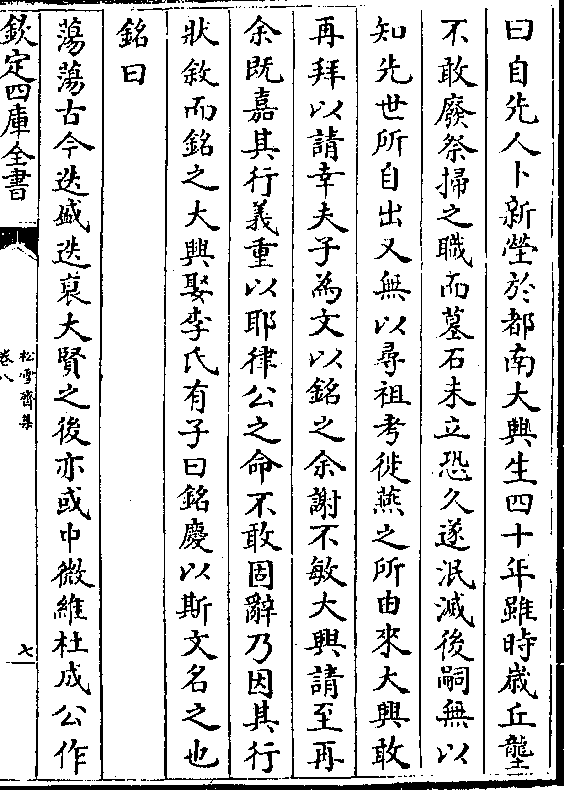 曰自先人卜新塋於都南大興生四十年雖時歲丘壟
不敢廢祭掃之職而墓石未立恐久遂泯滅後嗣無以
知先世所自出又無以尋祖考徙燕之所由來大興敢
再拜以請幸夫子為文以銘之余謝不敏大興請至再
余既嘉其行義重以耶律公之命不敢固辭乃因其行
狀敘而銘之大興娶李氏有子曰銘慶以斯文名之也
銘曰
蕩蕩古今迭盛迭衰大賢之後亦或中微維杜成公作
欽定四庫全書
松雪齋集
卷八
七